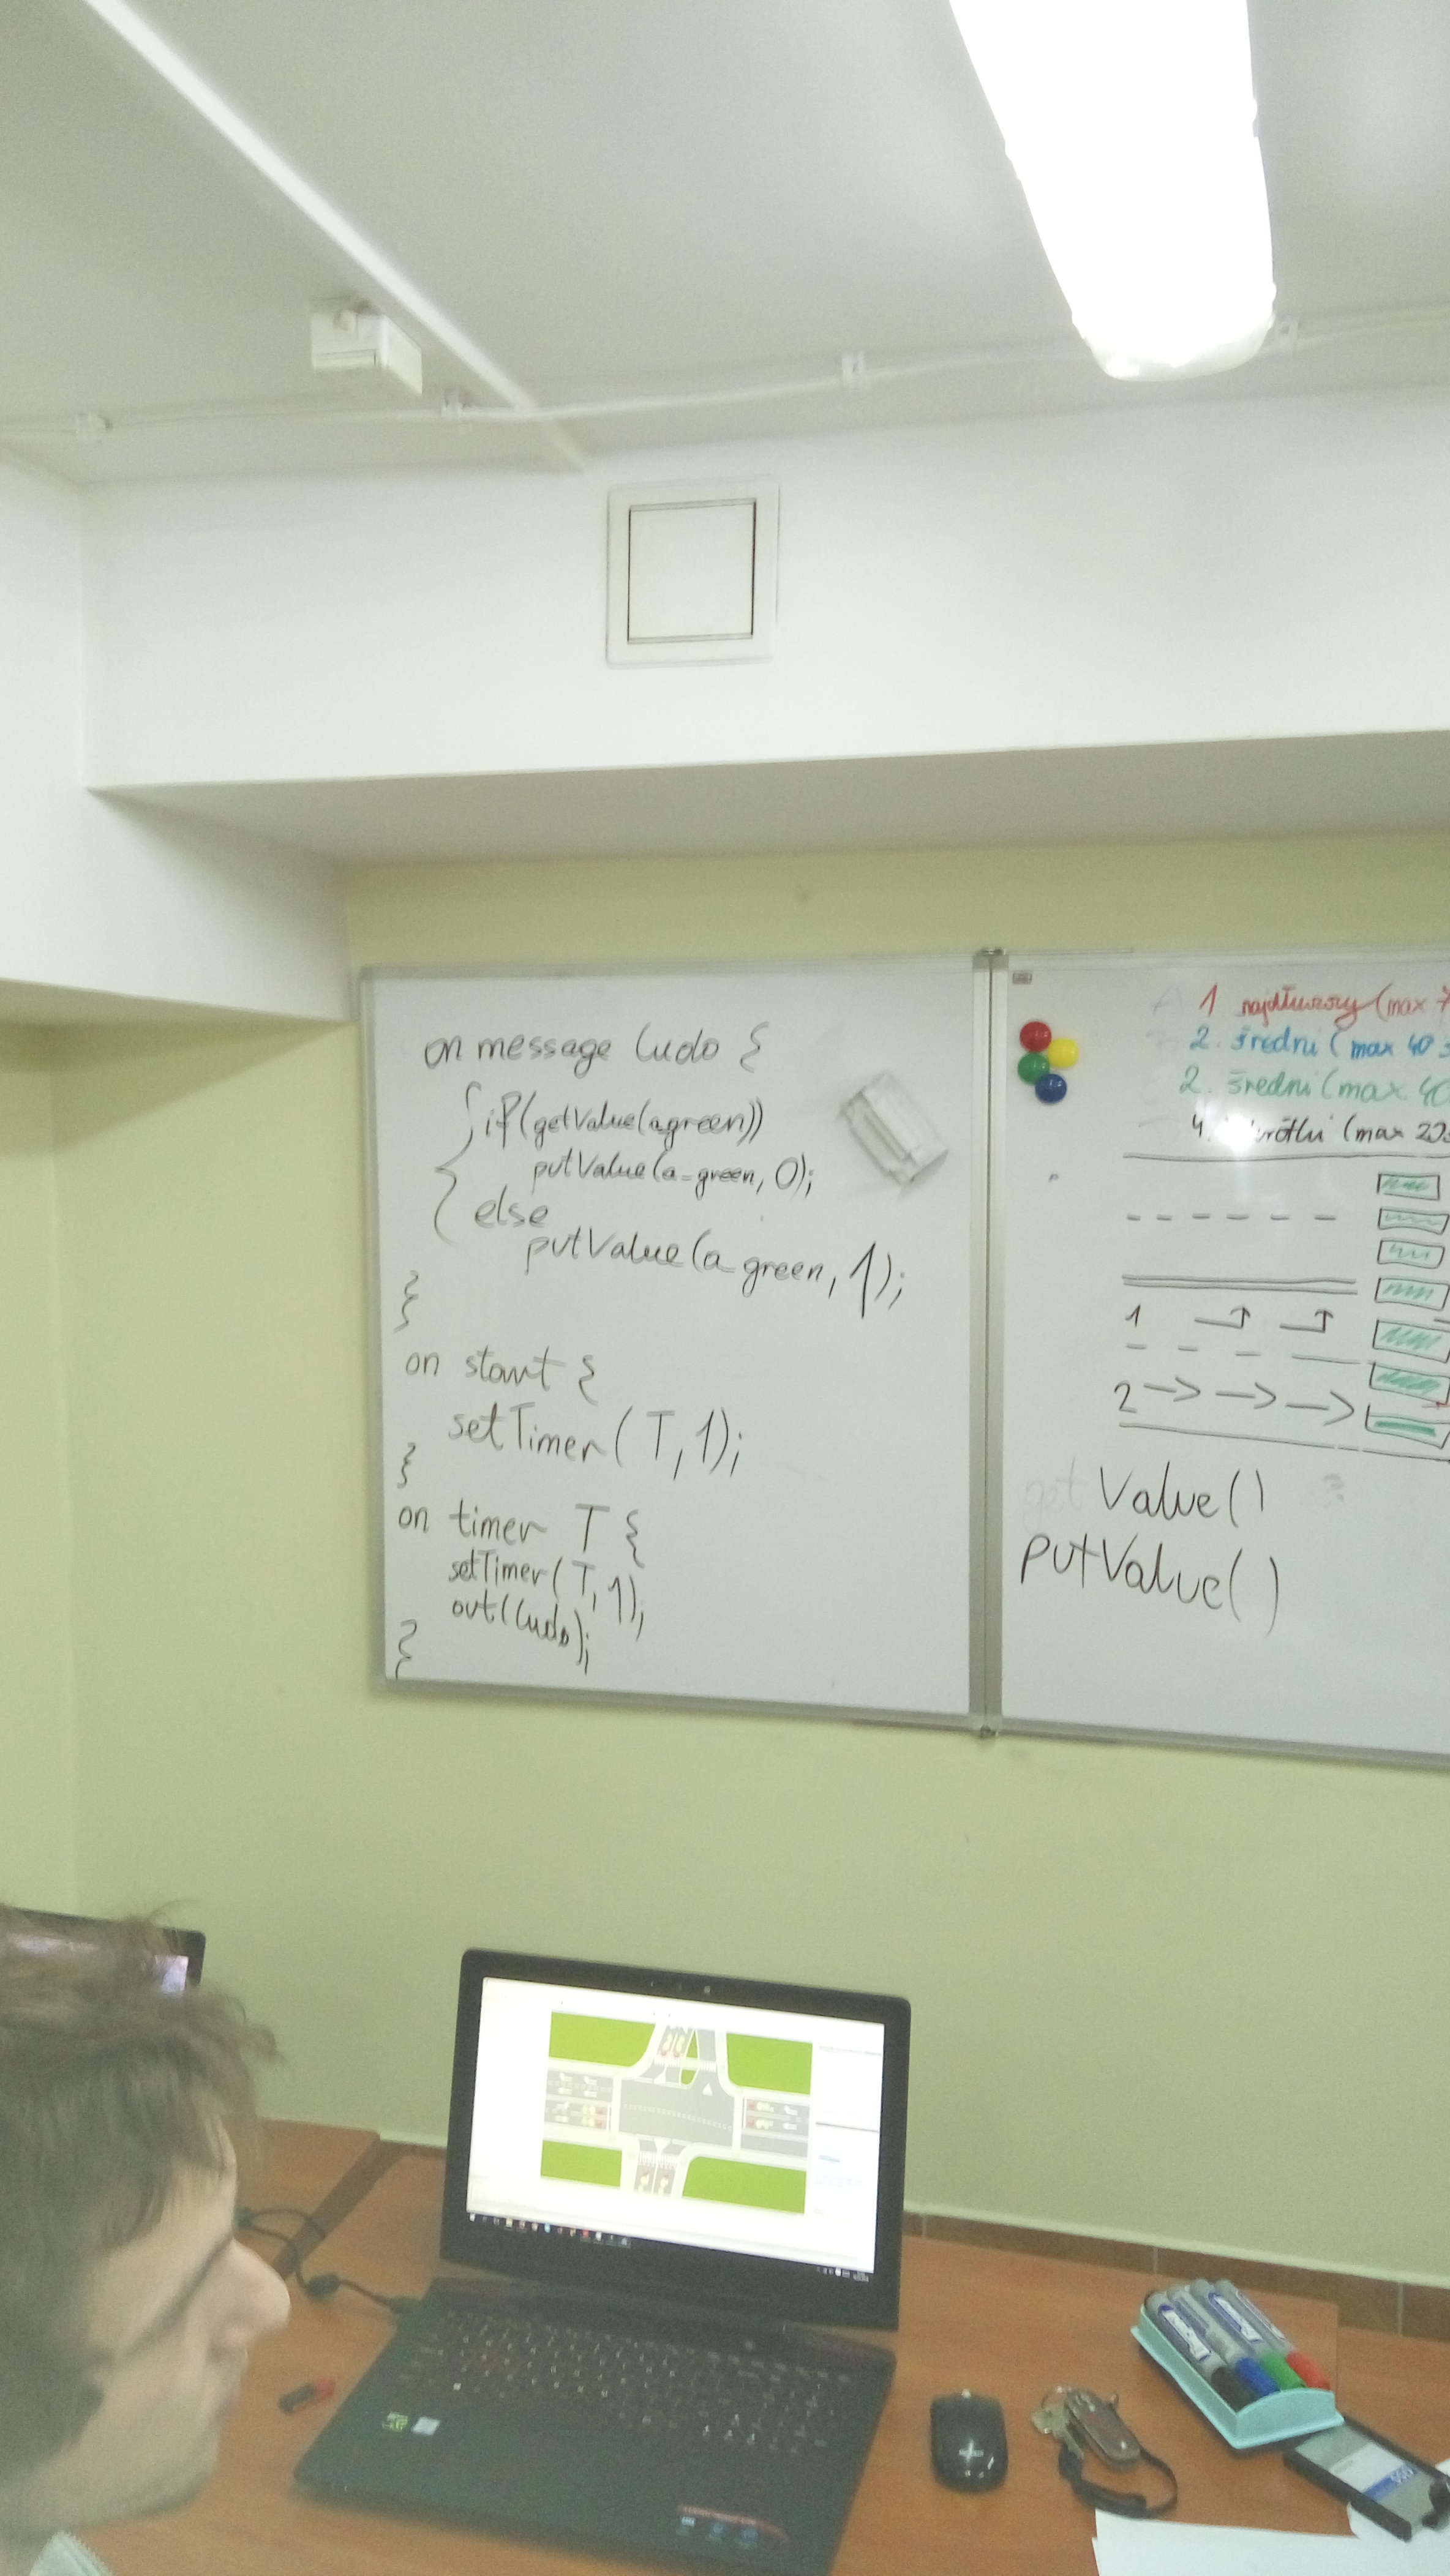 on message Cudo {
{ if(getValue(agreen))
putValue(a_green, 0);
else
putValue(a_green, 1);
}
on start {
setTimer(T,1);
}
on timer T {
setTimer(T,1);
out(Cudo);
}
1 najdłuższy (max 7
2. średni (max 40 s
2. średni (max 40
4. krótki (max 20s
1
2
get Value()
putValue()
SSD